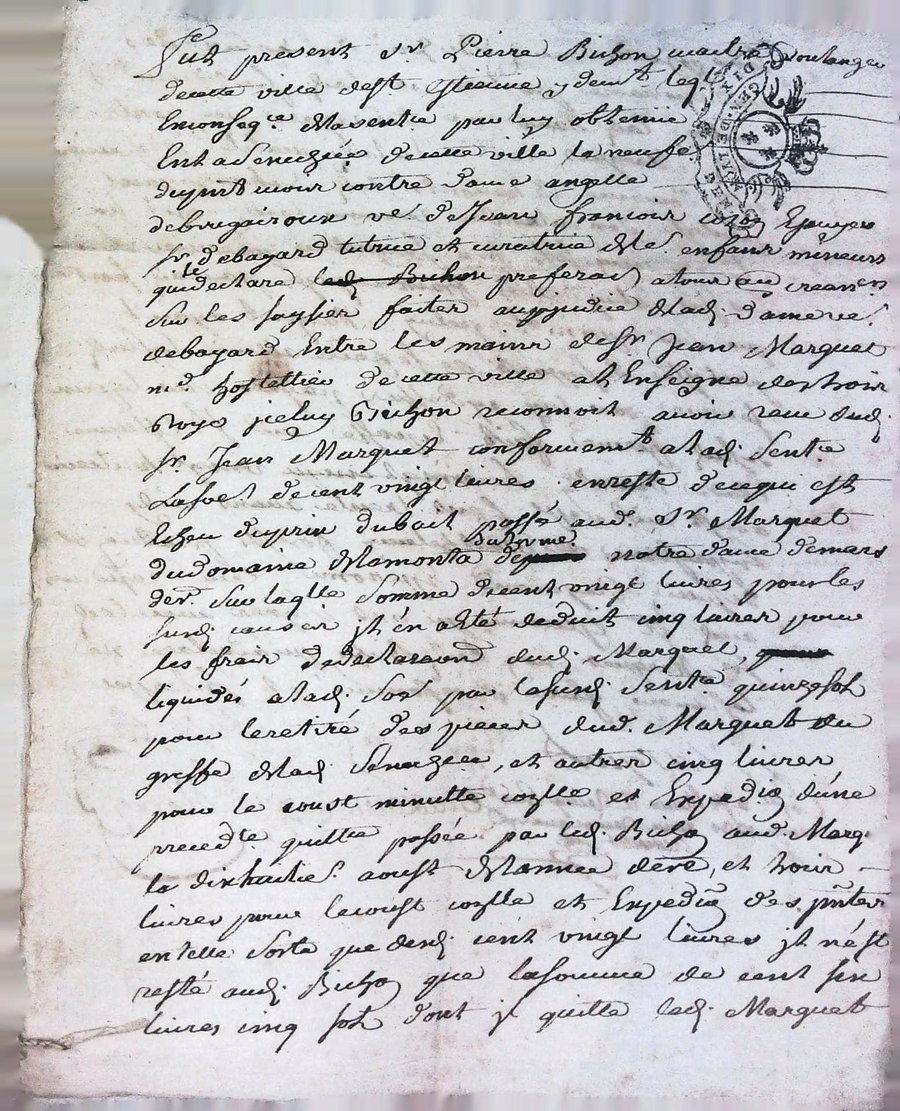 Fut present Sr. Pierre Buhon maitre Boulanger
de cette ville de St Etienne y demt. leql
En conseqce de la sentce par luy obtenue
En la Senechée de cette ville le neufe
du pnt mour contre dame angelle
debrugairoux ve. de Jean francois Epuyer
sr. debayard tutrice et curatrice de ses enfans mineurs
qui declare le Buhon preferas a tous creanrs
sur les saysies faites au prejudice de lad. dame ve.
debayard Entre les mains de sr. Jean Marquet
md. hostellier de cette ville a l'Enseigne des trois
Roys iceluy Buhon reconnoit avoir reçu dud.
sr. Jean Marquet conformemt. a lad. Sentce
La soe. de cent vingt livres en reste de ce qui est
Echeu du prix du bail passé aud. Sr. Marquet
du domaine de la monta du terme notre dame de mars
der. sur laqlle somme de cent vingt livres pour les
susd. causes il en a été deduit cinq livres pour
les frais de declaraon dud. Marquet,
liquidés a lad. soe par la susd. sentce quinze sols
pour le retiré des pieces dud. Marquet du
greffe de lad. Senechée, et autres cinq livres
pour le coust minutte et Expedion d'une
precedte quittce passée par led. Buhon aud. Marq.
la dixhuitie. aoust de l'année dere, et trois
livres pour le coust et Expedion des pntes
en telle sorte que desd. cent vingt livres il n'est
resté aud. Buhon que la somme de cent six
livres cinq sols dont il quitte led. Marquet